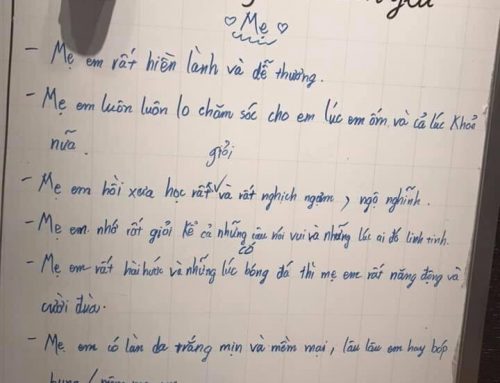 ♡ Mẹ ♡
- Mẹ em rất hiền lành và dễ thương.
- Mẹ em luôn luôn lo chăm sóc cho em lúc em ốm và cả lúc khoẻ
nữa.
giỏi
- Mẹ em hồi xưa học rất và rất nghịch ngợm, ngộ nghĩnh.
- Mẹ em nhớ rất giỏi kể cả những câu nói vui và những lúc ai đó linh tinh.
có
- Mẹ em rất hài hước và những lúc bóng đá thì mẹ em rất năng động và
cười đùa.
- Mẹ em có làn da trắng mịn và mềm mại, lâu lâu em hay bóp